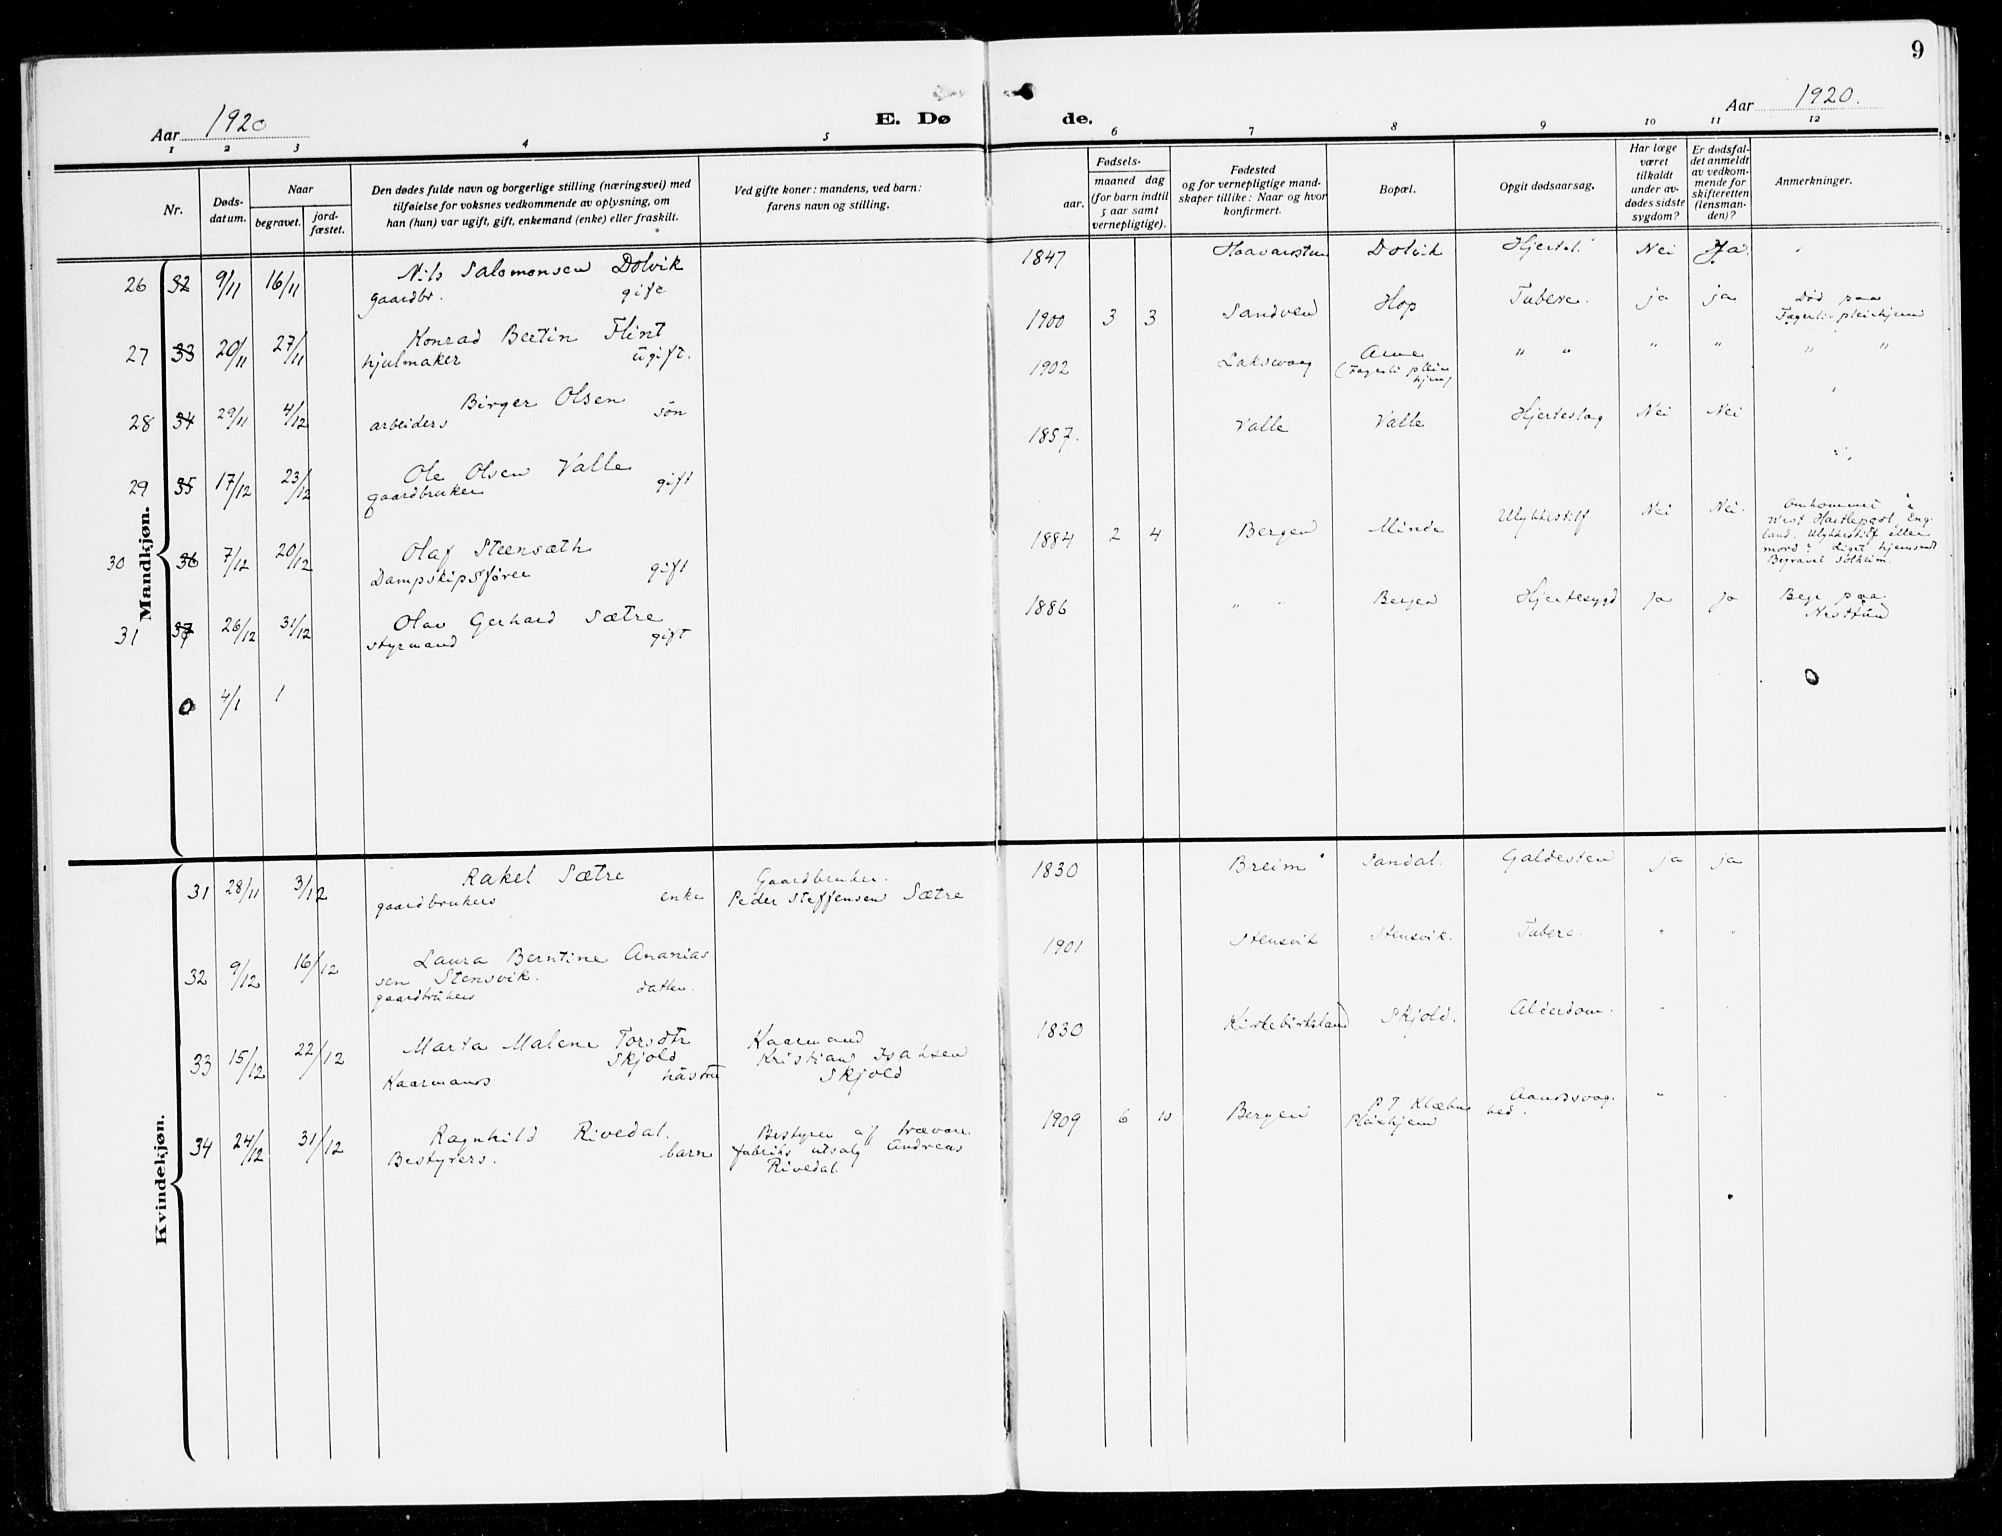 9
Aar 1920
E. Dø
de.
Aar 1920.
1 2 3 4 5 6 7 8 9 10 11 12
Nr.
Døds-
datum.
Naar
begravet.
jord-
fæstet.
Den dødes fulde navn og borgerlige stilling (næringsvei) med
tilføielse for voksnes vedkommende av oplysning, om
han (hun) var ugift, gift, enkemand (enke) eller fraskilt.
Ved gifte koner: mandens, ved barn:
farens navn og stilling.
Fødsels-
aar.
maaned dag
(for barn indtil
5 aar samt
vernepligtige).
Fødested
og for vernepligtige mand-
skaper tillike: Naar og hvor
konfirmert.
Bopæl.
Opgit dødsaarsag.
Har læge
været
tilkaldt
under av-
dødes sidste
sygdom?
Er dødsfal-
det anmeldt
av vedkom-
mende for
skifteretten
(lensman-
den)?
Anmerkninger.
Mandkjøn.
26 32 9/11 16/11 Nils Salomonsen Dolvik
gaardbr. gift
1847 Dolvik Nei Ja
27 33 20/11 27/11 Konrad Bertin Flint
hjulmaker ugift.
1900 3 3 Sandven Hop Tuberc. ja ja Død paa
Fagerli pleiehjem
28 34 29/11 4/12 Birger Olsen
arbeiders søn
1902 Laksevaag Arne " " " " " "
(Fagerli pleie
hjem)
29 35 17/12 23/12 Ole Olsen Valle
gaardbruker gift
1857. Valle Valle Hjerteslag Nei Nei
30 36 7/12 20/12 Olaf Steensæth
Dampskipsfører gift
1884 2 4 Bergen Minde Ulykkestilf Nei Nei. Omkommet i
West Hartlepool, Eng-
land. Ulykkestilf eller
mord? Liget hjemsendt
Begravet Solheim.
31 37 26/12 31/12 Olav Gerhard Sætre
styrmand gift
1886 " " Bergen Hjertesygd ja ja Begr paa
Nesttun
0 4/1 1
Kvindekjøn.
31 28/11 3/12 Rakel Sætre
gaardbrukers enke
Gaardbruker.
Peder Steffensen Sætre
1830 Breim Sandal. Galdesten ja ja
32 9/12 16/12 Laura Berntine Ananias
sen Stensvik.
gaardbrukers datter.
1901 Stensvik Stensvik. Tuberc. " "
33 15/12 22/12 Marta Malene Torsdtr
Skjold
Kaarmands hustru
Kaarmand
Kristian Isaksen
Skjold
1830 Kirkebirkeland Skjold. Alderdom. "
34 24/12 31/12 Ragnhild Rivedal.
Bestyrers. barn
Bestyrer af trævare
fabriks utsalg Andreas
Rivedal.
1909 6 10 Bergen P T Klæbu
Pleiehjem
Aandssvag
hed. "